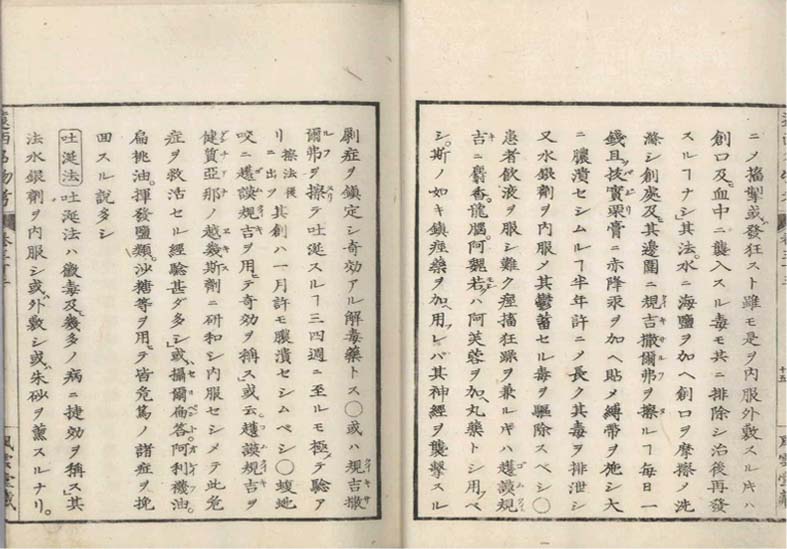 ニメ搐掣或發狂スト雖モ是ヲ内服外敷スルキハ
創口及血中ニ襲入スル毒モ共ニ排除シ治後再發
スルヿナシ其法水ニ海鹽ヲ加ヘ創口ヲ摩擦メ洗
滌シ創處及其邊圍ニ規吉撒爾弗ヲ擦ルヿ毎日一
錢且抜實栗膏ニ赤降汞ヲ加ヘ貼メ縛帶ヲ施シ大
ニ膿潰セシムルヿ半年許ニメ長ク其毒ヲ排泄シ
又水銀劑ヲ内服メ其鬱蓄セル毒ヲ驅除スベシ〇
患者飲液ヲ服シ難ク痙搐狂躁ヲ兼ルキハ護謨規
吉ニ麝香。龍腦。阿魏若クハ阿芙蓉ヲ加ヘ丸藥トシ用ベ
シ。斯ノ如キ鎮痙藥ヲ加ヘ用レバ其神經ヲ襲撃スル
十五
風雲堂藏
劇症ヲ鎮定シ奇効アル解毒藥トス〇或ハ規吉撒
爾弗ヲ擦テ吐涎スルヿ三四週ニ至ルモ極テ驗ア
リ擦法後ニ出ヲ其創ハ一月許モ膿潰セシムベシ〇蝮虵
咬ニ護謨規吉ヲ用テ奇効ヲ稱ス或云護謨規吉ヲ
健質亞那ノ越幾斯劑ニ研和シ内服セシメテ此危
症ヲ救活セル經驗甚ダ多シ或攝爾扁答。阿利襪油。
扁桃油。揮發鹽類。沙糖等ヲ用テ皆危篤ノ諸症ヲ挽
回スル說多シ
吐涎法 吐涎法ハ黴毒及幾多ノ病ニ捷効ヲ稱ス其
法水銀劑ヲ内服シ或ハ外敷シ或ハ朱砂ヲ薰スルナリ。
風雲堂藏